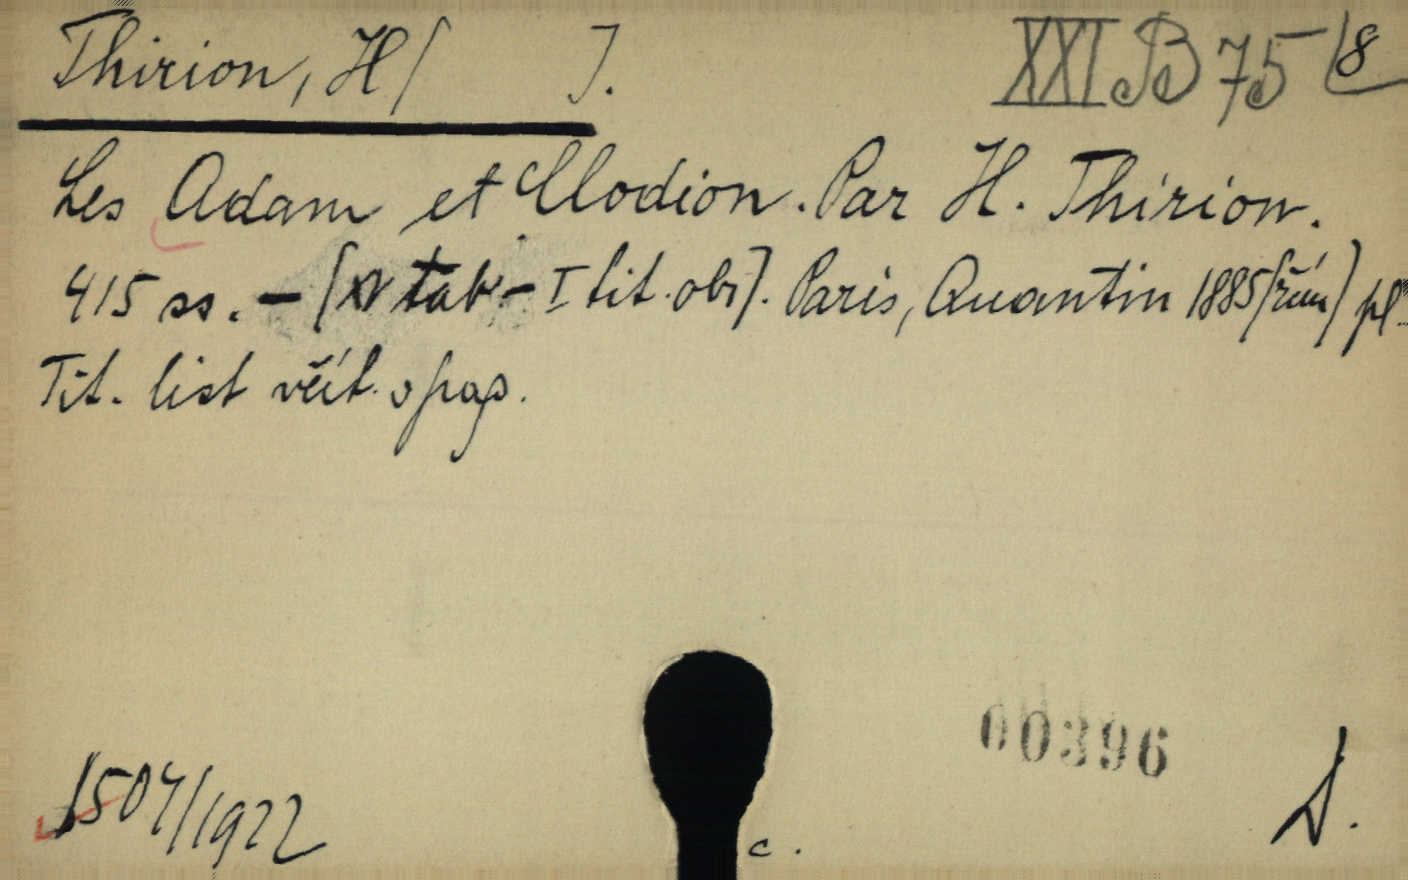 Thirion, H[ ].
XXI B 75 8
Les Adam et Clodion. Par H. Thirion.
415 ss. – [XV tab. – I tit. obr]. Paris, Quantin 1885 (řím) pl.
Tit. list včít. v pag.
1504/1922
00396
c.